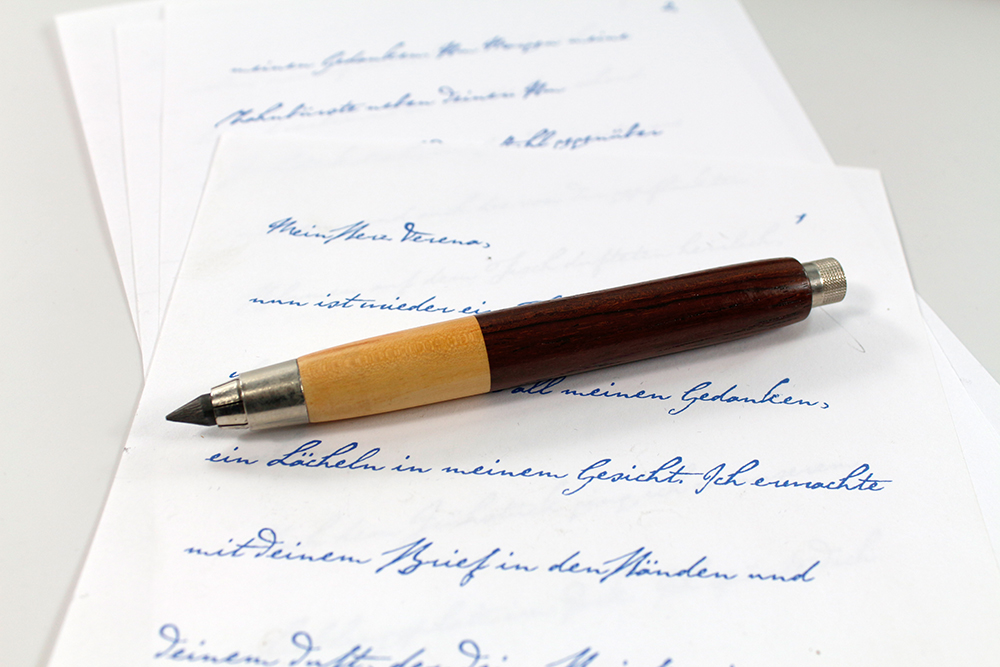 meinen Gedanken. Am Morgen meine
Zahnbürste neben deinen Am
gegenüber
1
Mein Herz Verena,
nun ist wieder ei
all meinen Gedanken,
ein Lächeln in meinem Gesicht. Ich erwachte
mit deinem Brief in den Händen und
deinem Duft, der